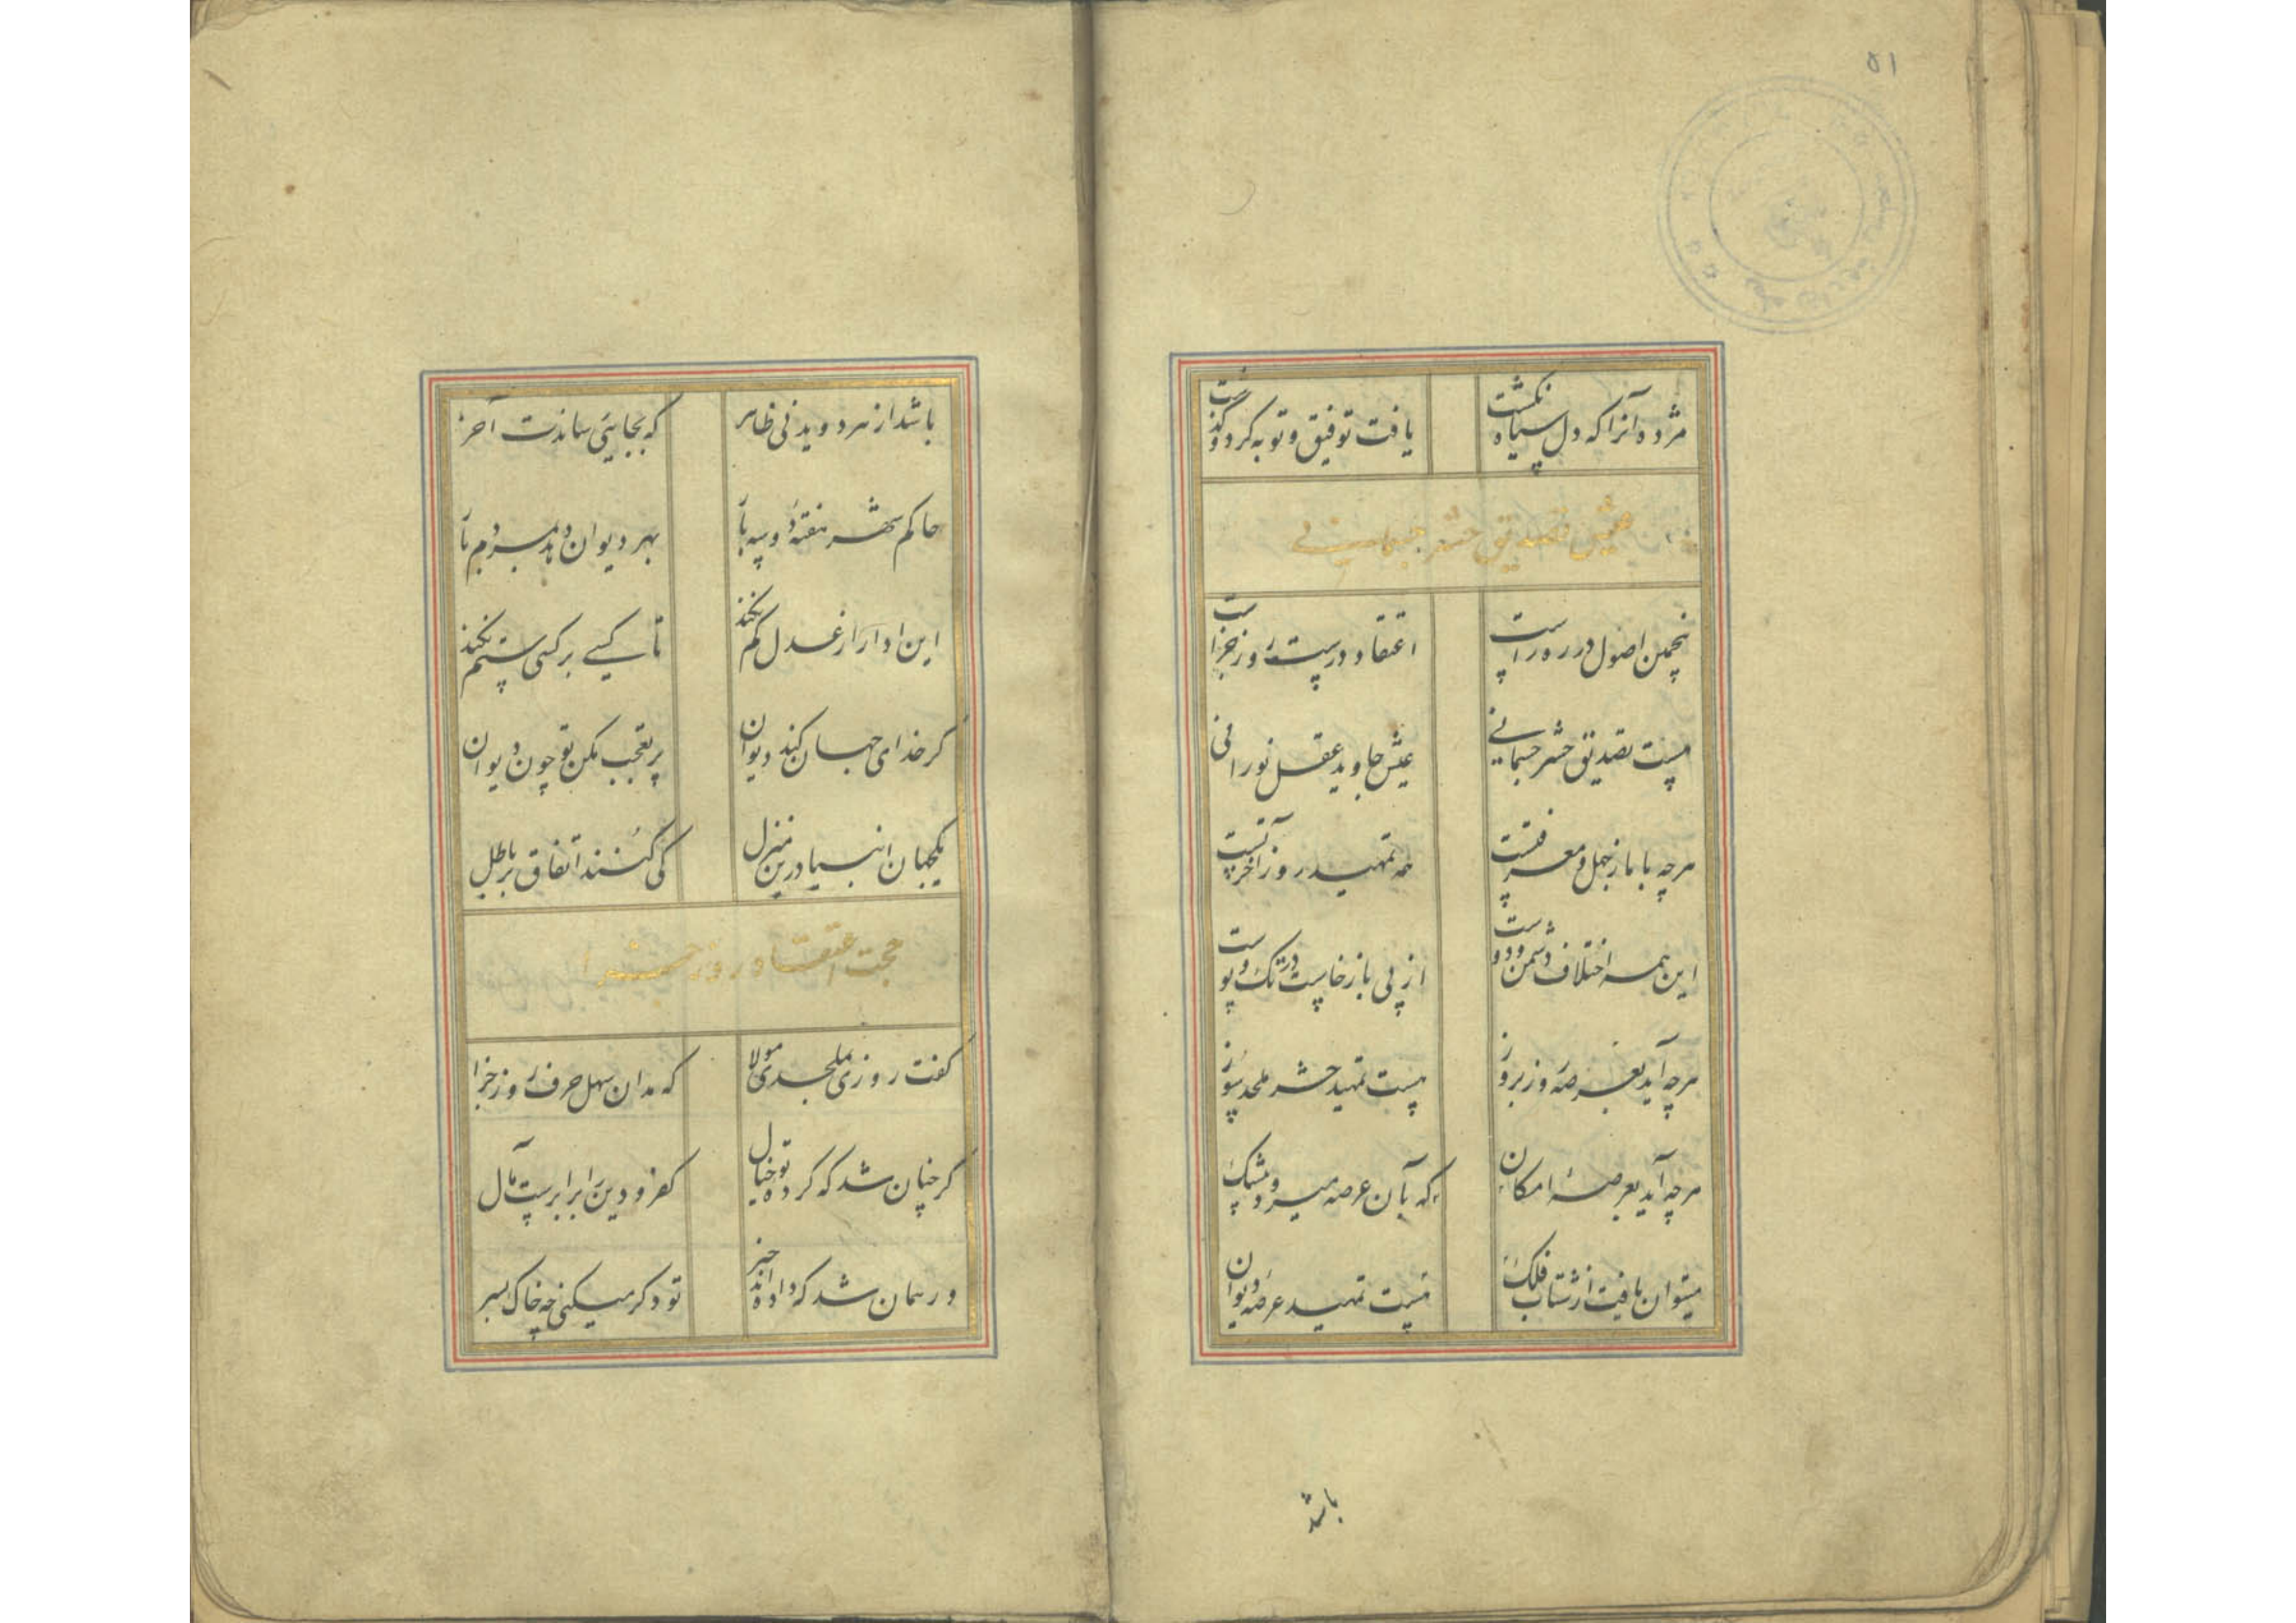 ۵۱
مژده آنرا که دل سیاه نگشت یافت توفیق و توبه کرد و گذشت
تصدیق حشر جسمانی
پنجمین اصول در ره راست اعتقاد درست روز جزاست
چیست تصدیق حشر جسمانی عیش جاوید عقل نورانی
هرچه با ما ز جهل و معرفتست همه تمهید روز آخرتست
این همه اختلاف دشمن و دوست از پی بازخاست در تک و پوست
هرچه آید بعرصه روز بروز چیست تمهید حشر ملحد سوز
هرچه آید بعرصه امکان که بآن عرصه میرود
میتوان یافت از شتاب فلک چیست تمهید عرصه دیوان
باشد
باشد از هر دویدنی ظاهر که بجائی رساندت آخر
حاکم شهر هفته دو سه بار بهر دیوان دهد بمردم بار
این ادا را ز عدل کم نکند تا کسی بر کسی ستم نکند
گر خدای جهان کند دیوان پر تعجب مکن تو چون دیوان
یکجهان انبیا درین منزل کی کنند اتفاق بر باطل
حجت اعتقاد روز جزا
گفت روزی بملحدی مولا که مدان سهل حرف روز جزا
گر چنان شد که کرده تو خیال کفر و دین را برابرست مآل
ور همان شد که داده‌اند خبر تو دگر میکنی چه خاک بسر